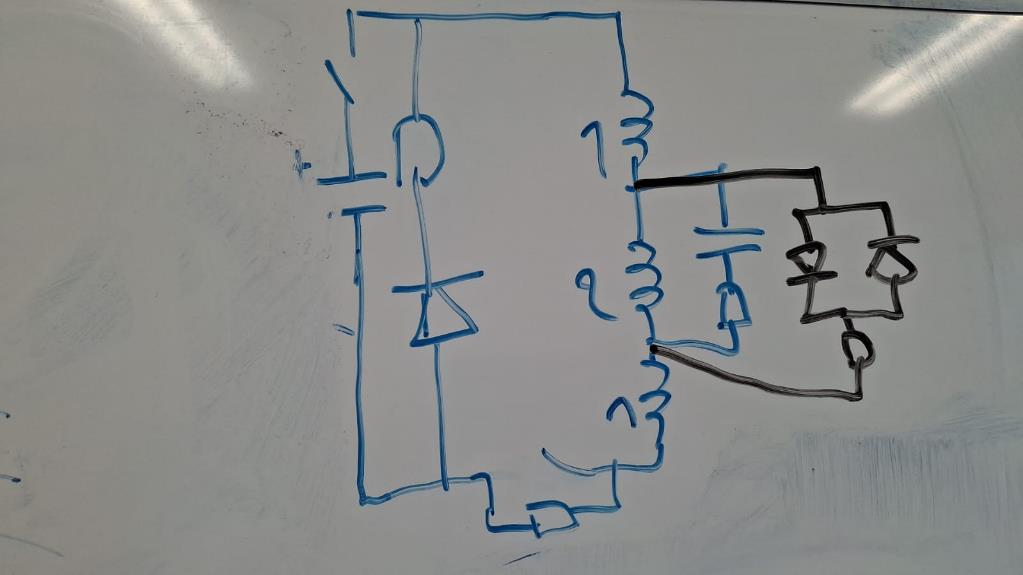 +
1
2
1